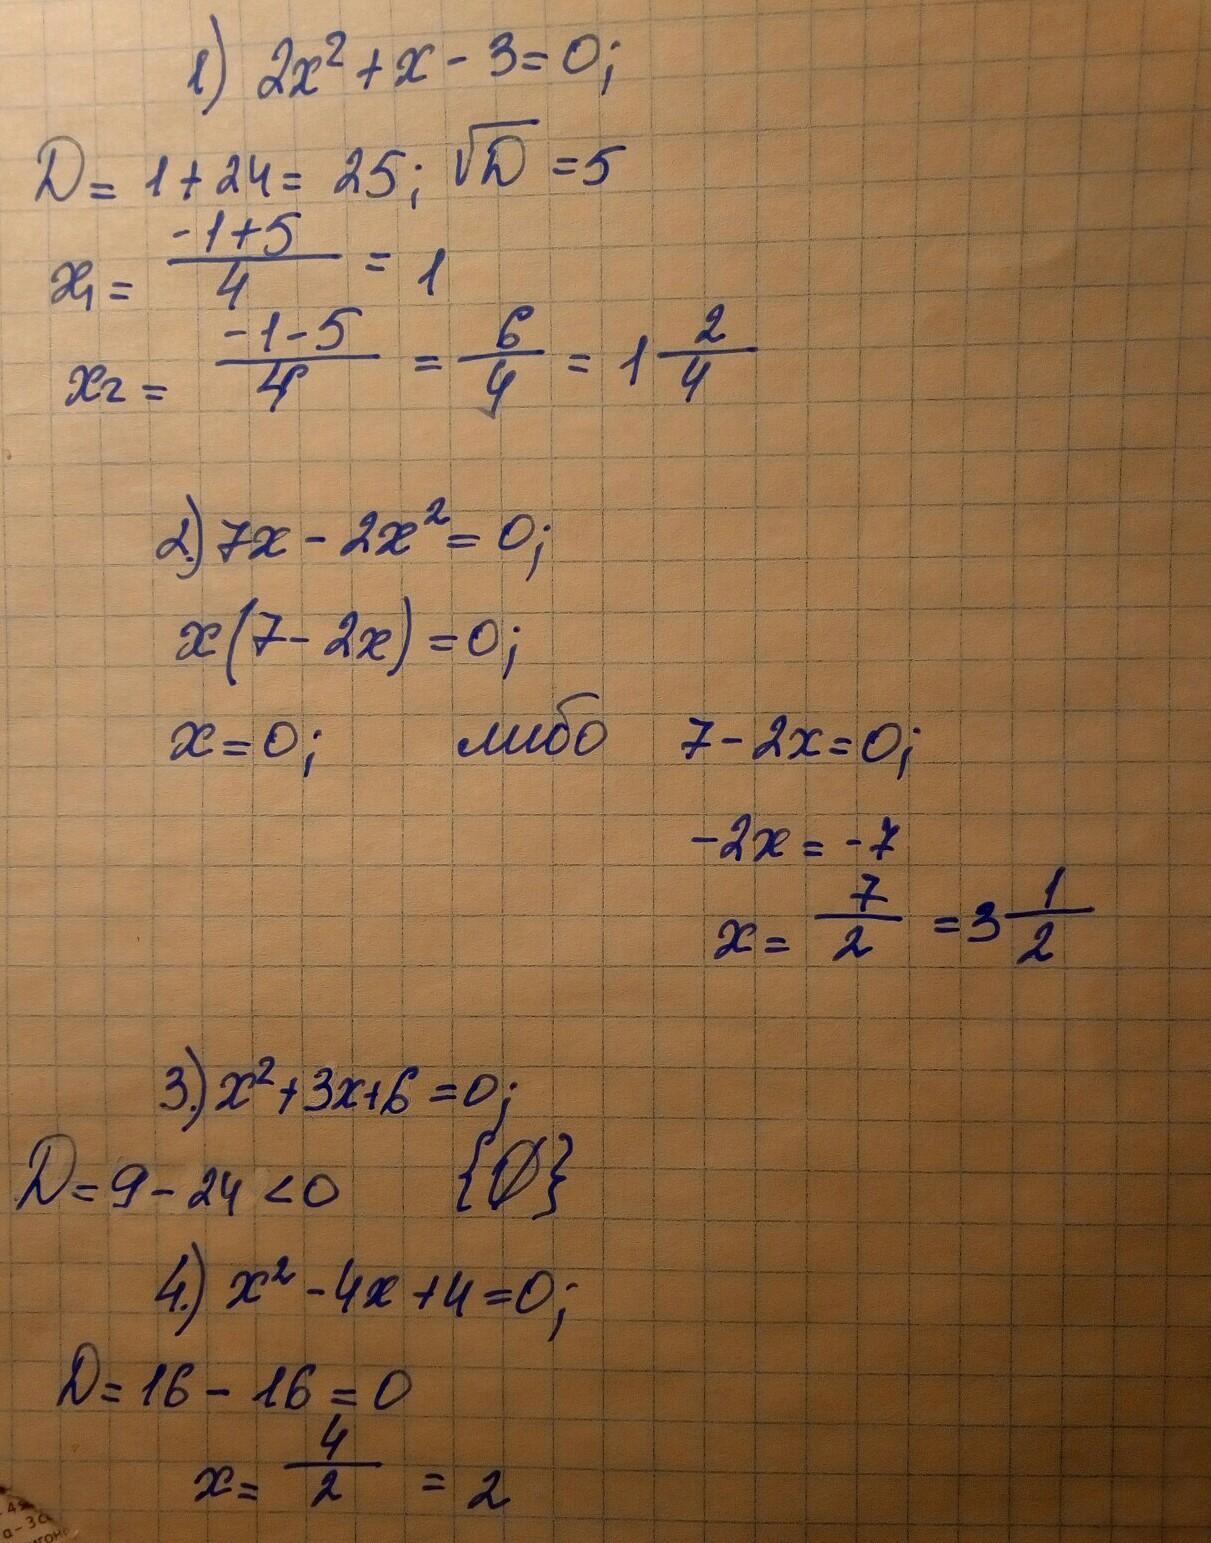 1) 2x² + x - 3 = 0;
D = 1 + 24 = 25; √D = 5
x₁ = (-1+5)/4 = 1
x₂ = (-1-5)/4 = 6/4 = 1 2/4
2.) 7x - 2x² = 0;
x(7 - 2x) = 0;
x = 0; либо 7 - 2x = 0;
-2x = -7
x = 7/2 = 3 1/2
3.) x² + 3x + 6 = 0;
D = 9 - 24 < 0 {Ø}
4.) x² - 4x + 4 = 0;
D = 16 - 16 = 0
x = 4/2 = 2